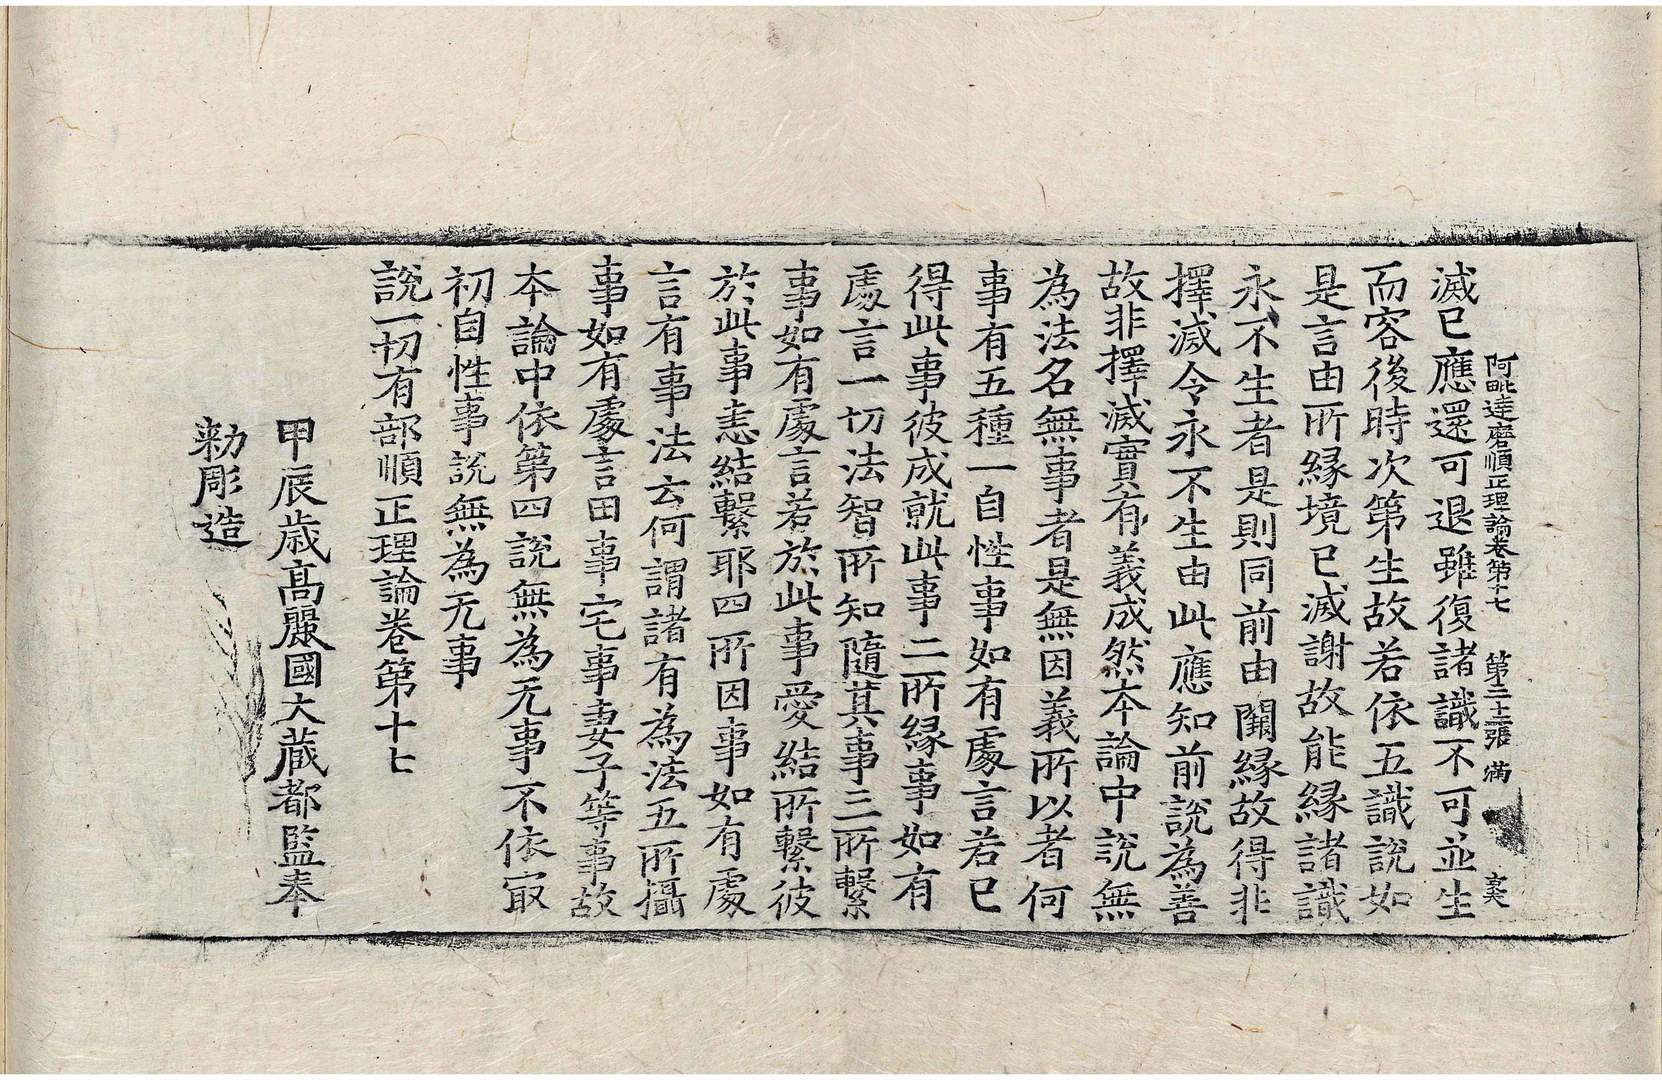 阿毗達磨順正理論卷第十七 第二十二張 滿
滅已應還可退雖復諸識不可並生
而容後時次第生故若依五識說如
是言由所緣境已滅謝故能緣諸識
永不生者是則同前由闕緣故得非
擇滅令永不生由此應知前說為善
故非擇滅實有義成然本論中說無
為法名無事者是無因義所以者何
事有五種一自性事如有處言若已
得此事彼成就此事二所緣事如有
處言一切法智所知隨其事三所繫
事如有處言若於此事愛結所繫彼
於此事恚結繫耶四所因事如有處
言有事法云何謂諸有為法五所攝
事如有處言田事宅事妻子等事故
本論中依第四說無為无事不依㝡
初自性事說無為无事
說一切有部順正理論卷第十七
甲辰歲高麗國大藏都監奉
勅彫造